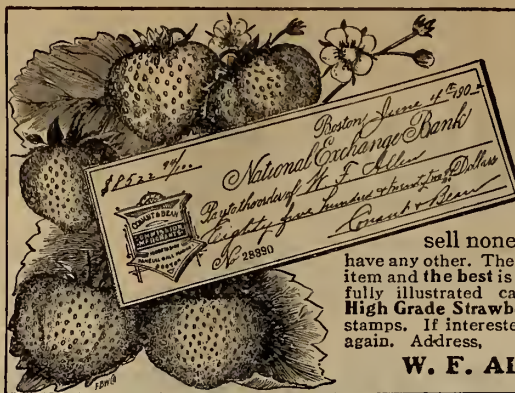 Boston, June 4th, 190
$8522 94/100
National Exchange Bank
Pay to the order of W F Allen
Eighty five hundred & twenty two Dollars
Conant & Bean
CONANT & BEAN
COMMISSION
MERCHANTS
FANEUIL HALL
BOSTON
No 28390
sell none
have any other. The
item and the best is
fully illustrated ca
High Grade Strawb
stamps. If intereste
again. Address,
W. F. AL